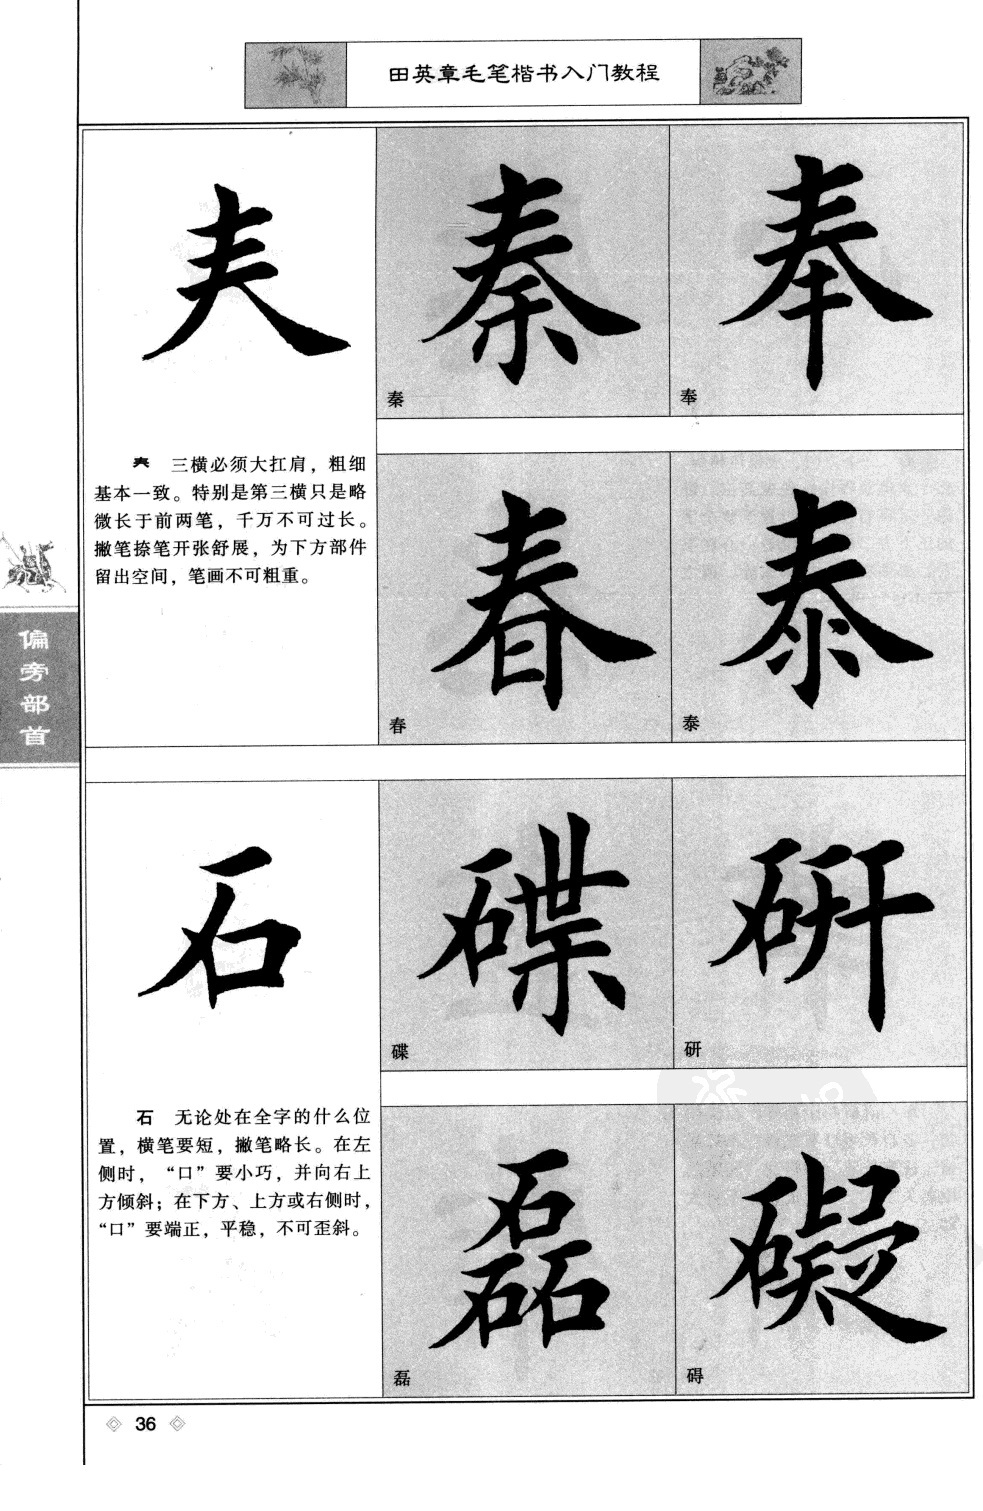 田英章毛笔楷书入门教程
𡗗
秦
秦
奉
奉
𡗗　三横必须大扛肩，粗细
基本一致。特别是第三横只是略
微长于前两笔，千万不可过长。
撇笔捺笔开张舒展，为下方部件
留出空间，笔画不可粗重。
春
春
泰
泰
偏旁部首
石
碟
碟
研
研
石　无论处在全字的什么位
置，横笔要短，撇笔略长。在左
侧时，“口”要小巧，并向右上
方倾斜；在下方、上方或右侧时，
“口”要端正，平稳，不可歪斜。
磊
磊
礙
碍
36